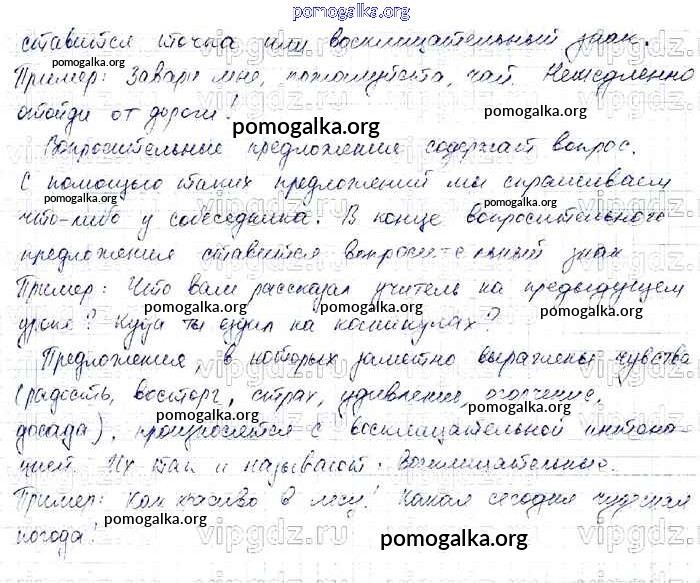 pomogalka.org
ставится точка или восклицательный знак.
Пример: Завари мне, пожалуйста, чай. Немедленно
отойди от дороги!
pomogalka.org
Вопросительные предложения содержат вопрос.
С помощью таких предложений мы спрашиваем
что-либо у собеседника. В конце вопросительного
pomogalka.org
предложения ставится вопросительный знак
Пример: Что вам рассказал учитель на предыдущем
pomogalka.org pomogalka.org
уроке? Куда ты ездил на каникулах?
Предложения, в которых заметно выражены чувства
(радость, восторг, страх, удивление, огорчение,
pomogalka.org pomogalka.org
досада), произносятся с восклицательной интона-
цией. Их так и называют: восклицательные.
pomogalka.org
Пример: Как красиво в лесу! Какая сегодня чудесная
pomogalka.org
погода!
pomogalka.org
vipgdz.ru